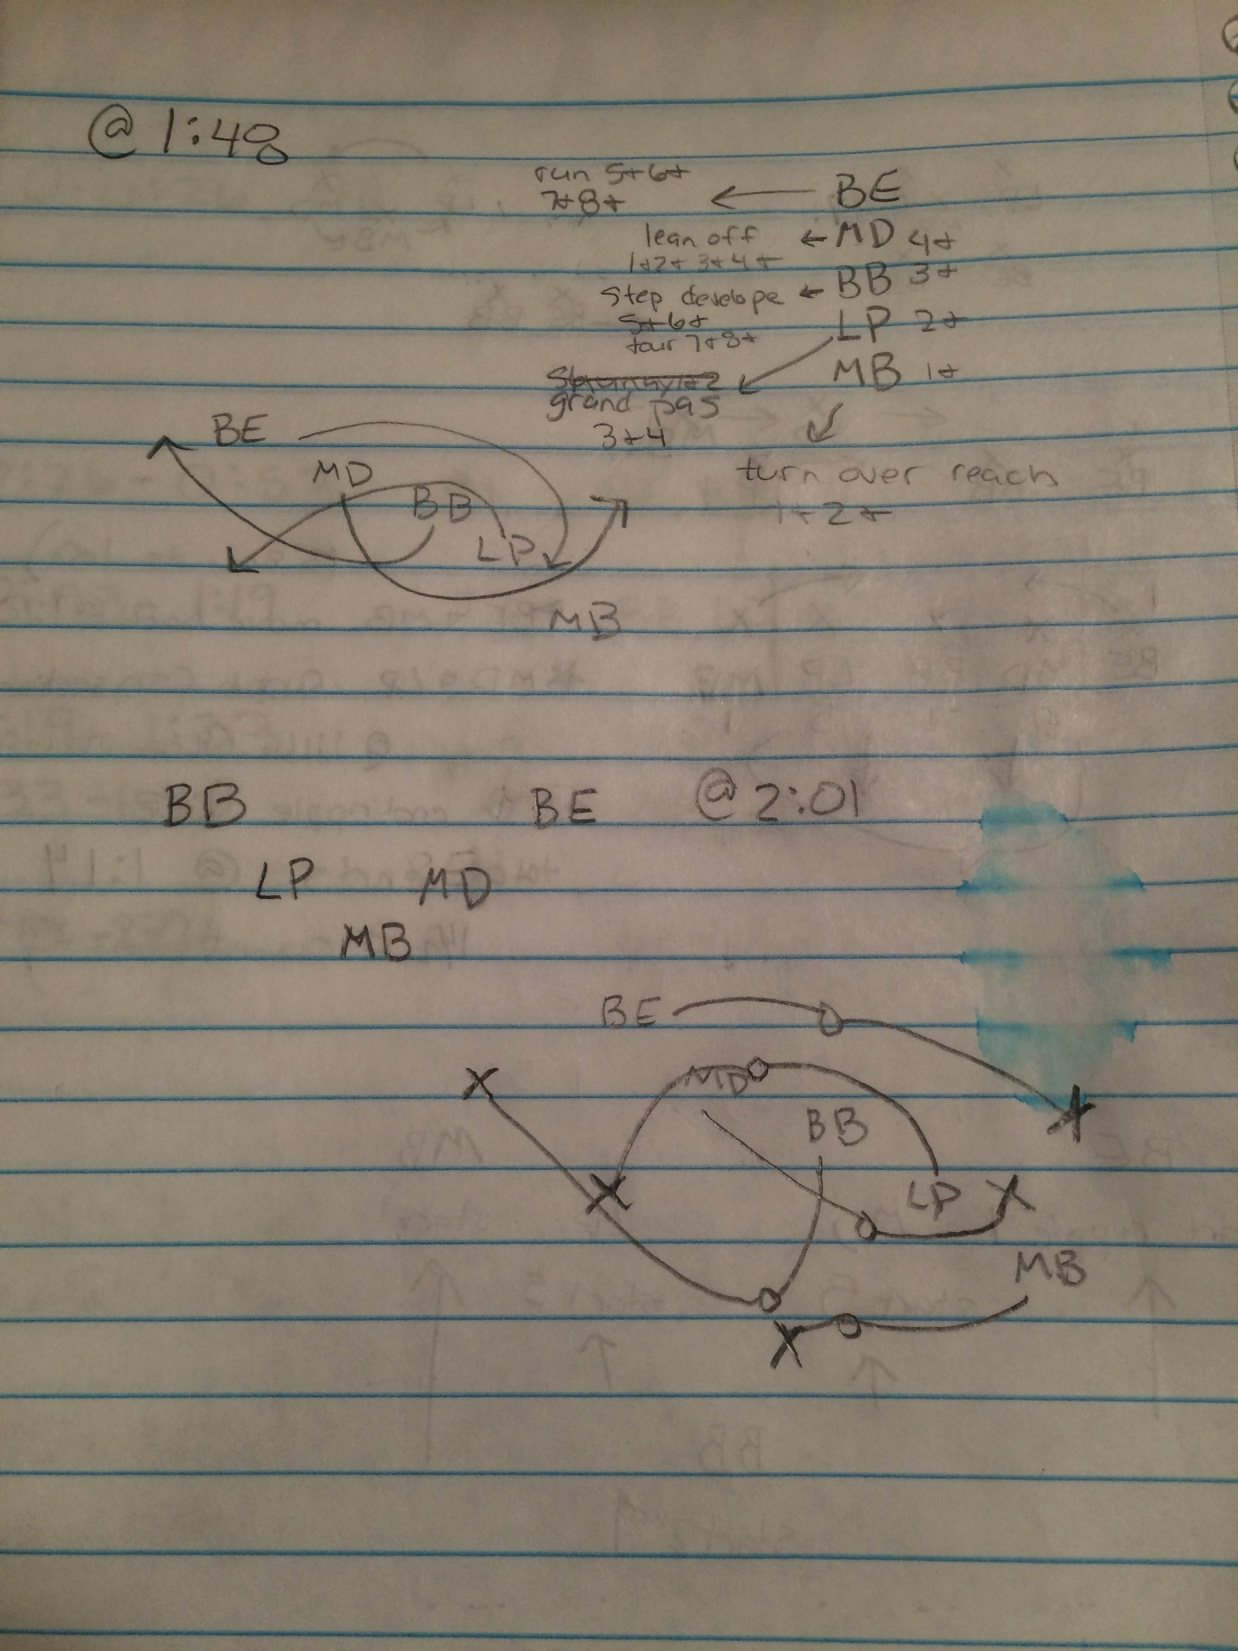 @ 1:48
run 5+6+ ← BE
7+8+
lean off ← MD 4+
1+2+ 3+4+
step develope ← BB 3+
5+6+
tour 7+8+
LP 2+
grand pas
3+4
MB 1+
turn over reach
1+2+
BE
MD
BB
LP
MB
BB BE @ 2:01
LP MD
MB
BE
X MD
BB
X LP X
MB
X
X